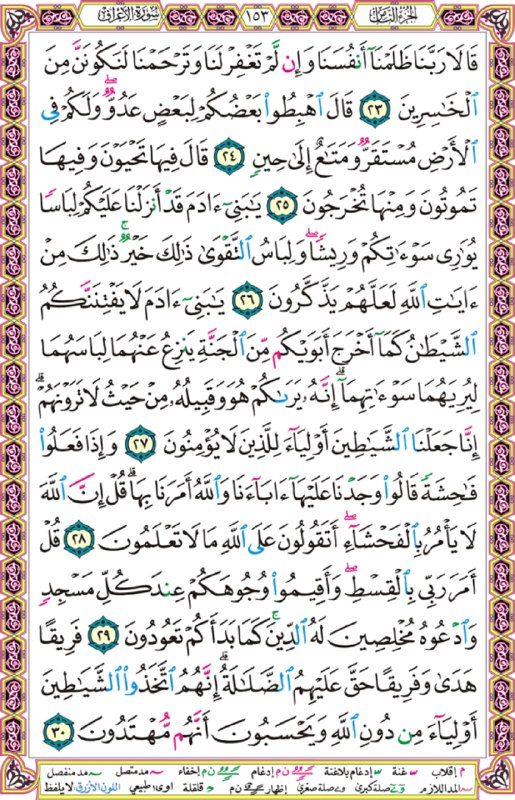 سورة الأعراف ١٥٣ الجزء الثامن
قَالَا رَبَّنَا ظَلَمْنَآ أَنفُسَنَا وَإِن لَّمْ تَغْفِرْ لَنَا وَتَرْحَمْنَا لَنَكُونَنَّ مِنَ
ٱلْخَٰسِرِينَ ٢٣ قَالَ ٱهْبِطُوا۟ بَعْضُكُمْ لِبَعْضٍ عَدُوٌّۖ وَلَكُمْ فِى
ٱلْأَرْضِ مُسْتَقَرٌّ وَمَتَٰعٌ إِلَىٰ حِينٍ ٢٤ قَالَ فِيهَا تَحْيَوْنَ وَفِيهَا
تَمُوتُونَ وَمِنْهَا تُخْرَجُونَ ٢٥ يَٰبَنِىٓ ءَادَمَ قَدْ أَنزَلْنَا عَلَيْكُمْ لِبَاسًا
يُوَٰرِى سَوْءَٰتِكُمْ وَرِيشًاۖ وَلِبَاسُ ٱلتَّقْوَىٰ ذَٰلِكَ خَيْرٌۚ ذَٰلِكَ مِنْ
ءَايَٰتِ ٱللَّهِ لَعَلَّهُمْ يَذَّكَّرُونَ ٢٦ يَٰبَنِىٓ ءَادَمَ لَا يَفْتِنَنَّكُمُ
ٱلشَّيْطَٰنُ كَمَآ أَخْرَجَ أَبَوَيْكُم مِّنَ ٱلْجَنَّةِ يَنزِعُ عَنْهُمَا لِبَاسَهُمَا
لِيُرِيَهُمَا سَوْءَٰتِهِمَآۗ إِنَّهُۥ يَرَىٰكُمْ هُوَ وَقَبِيلُهُۥ مِنْ حَيْثُ لَا تَرَوْنَهُمْۗ
إِنَّا جَعَلْنَا ٱلشَّيَٰطِينَ أَوْلِيَآءَ لِلَّذِينَ لَا يُؤْمِنُونَ ٢٧ وَإِذَا فَعَلُوا۟
فَٰحِشَةً قَالُوا۟ وَجَدْنَا عَلَيْهَآ ءَابَآءَنَا وَٱللَّهُ أَمَرَنَا بِهَاۗ قُلْ إِنَّ ٱللَّهَ
لَا يَأْمُرُ بِٱلْفَحْشَآءِۖ أَتَقُولُونَ عَلَى ٱللَّهِ مَا لَا تَعْلَمُونَ ٢٨ قُلْ
أَمَرَ رَبِّى بِٱلْقِسْطِۖ وَأَقِيمُوا۟ وُجُوهَكُمْ عِندَ كُلِّ مَسْجِدٍ
وَٱدْعُوهُ مُخْلِصِينَ لَهُ ٱلدِّينَۚ كَمَا بَدَأَكُمْ تَعُودُونَ ٢٩ فَرِيقًا
هَدَىٰ وَفَرِيقًا حَقَّ عَلَيْهِمُ ٱلضَّلَٰلَةُۗ إِنَّهُمُ ٱتَّخَذُوا۟ ٱلشَّيَٰطِينَ
أَوْلِيَآءَ مِن دُونِ ٱللَّهِ وَيَحْسَبُونَ أَنَّهُم مُّهْتَدُونَ ٣٠
م إقلاب غنة إدغام بلاغنة إدغام إخفاء مد متصل مد منفصل
المد اللازم صلة كبرى وصلة صغرى إظهار قلقلة طبيعي اللون الأزرق لا يلفظ